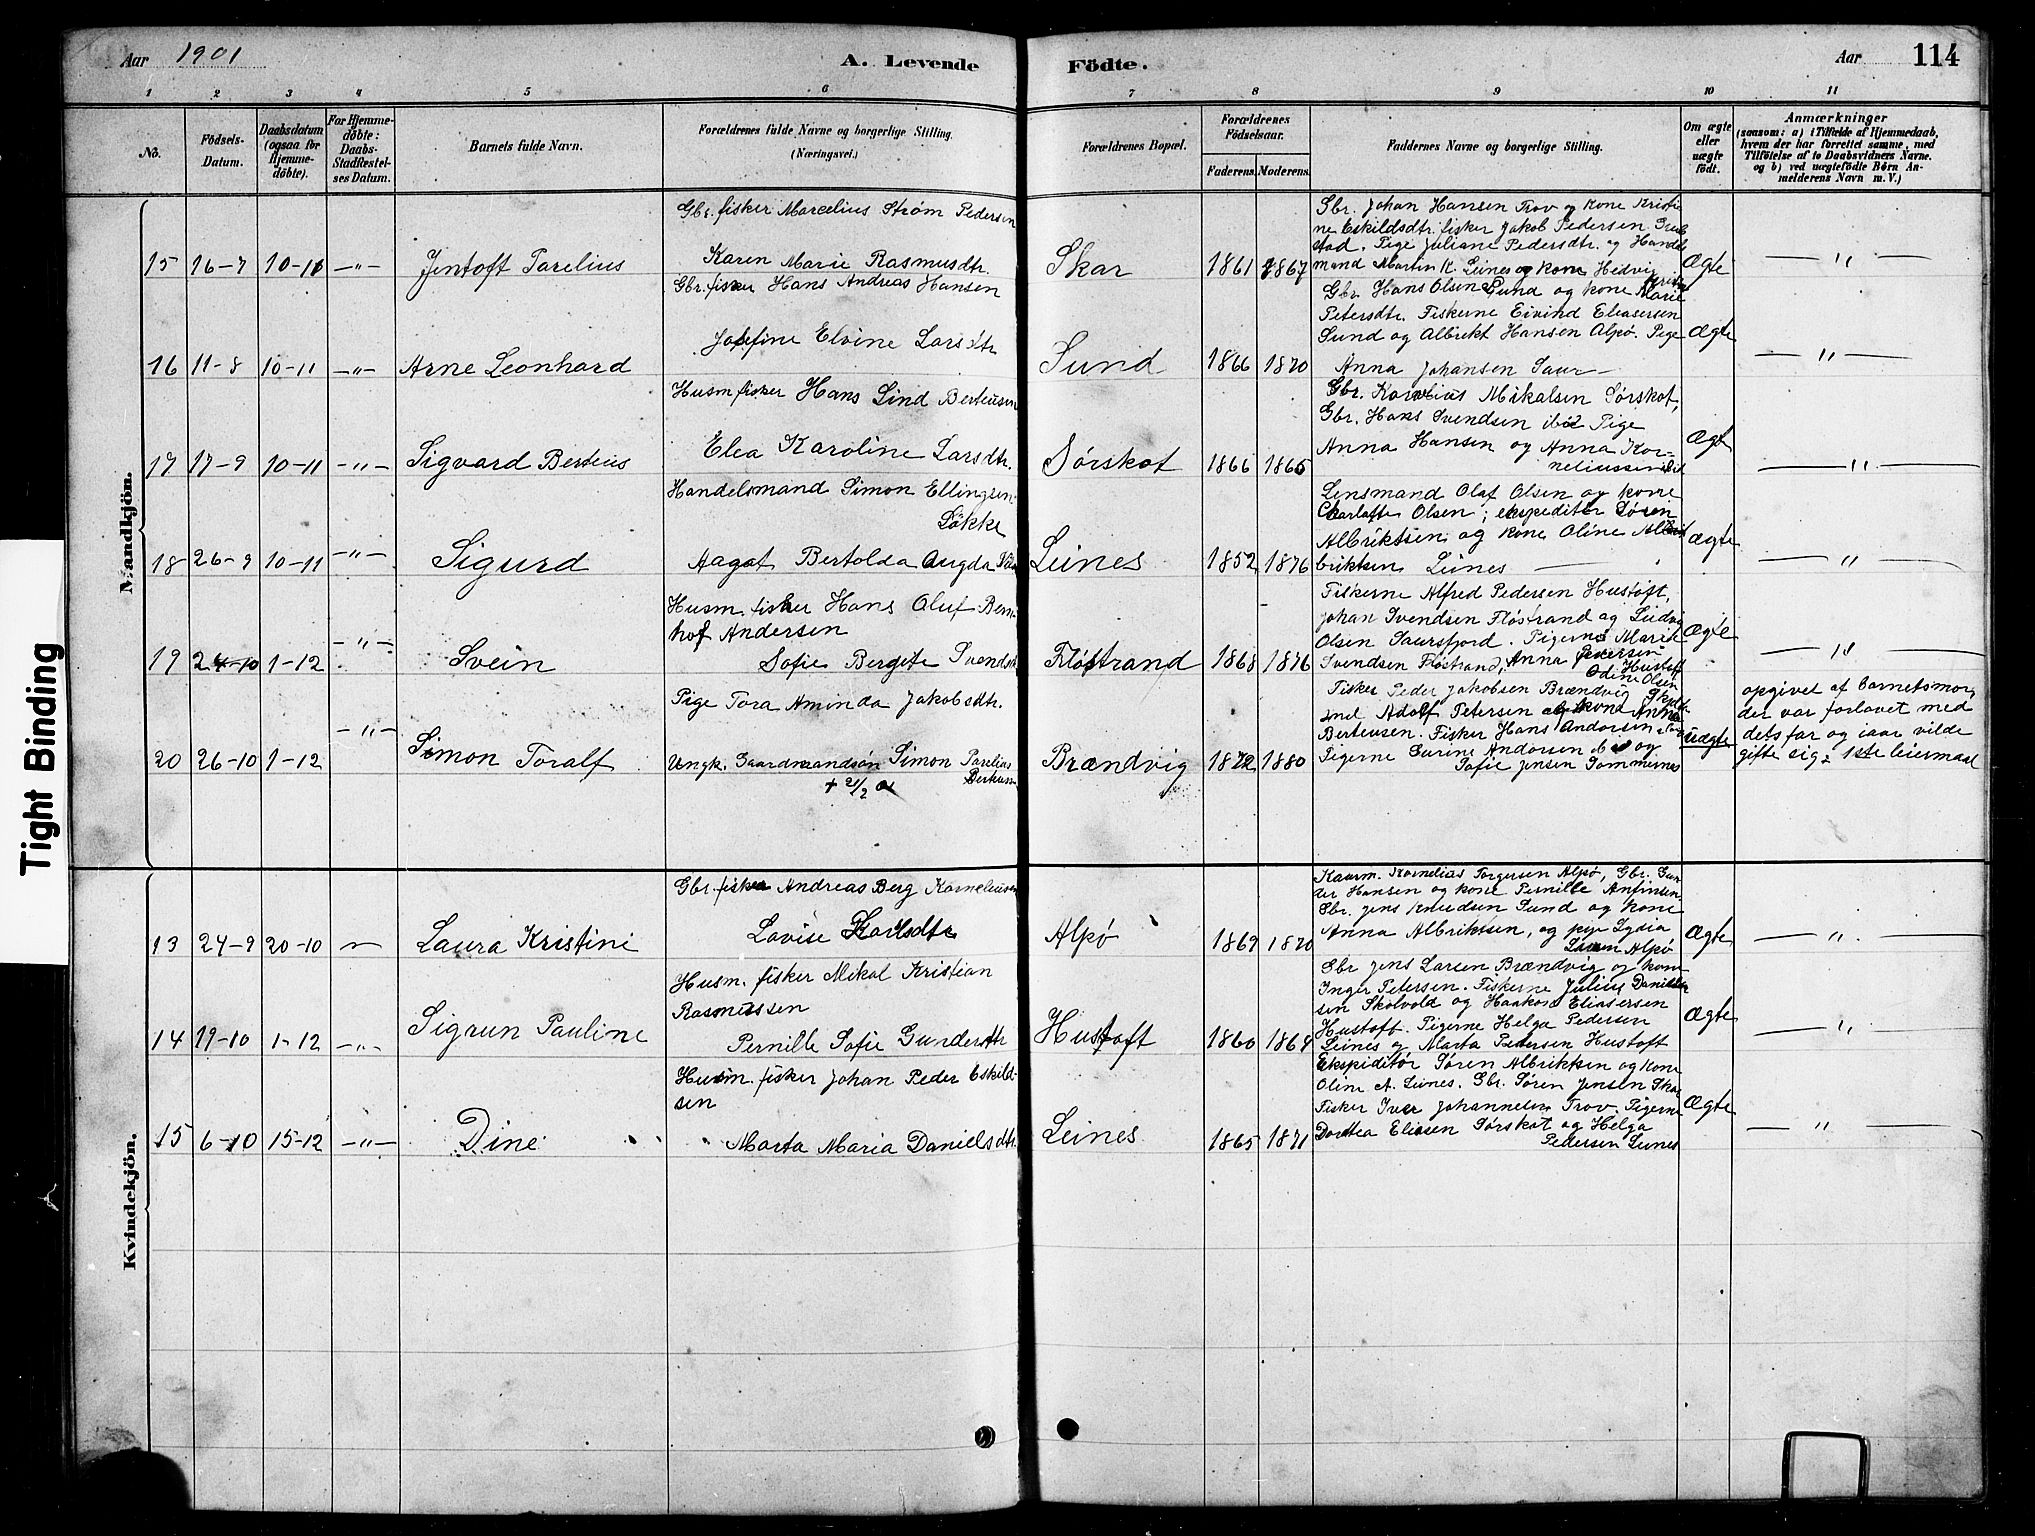 Aar 1901
A. Levende
Födte.
Aar
114
1 2 3 4 5 6 7 8 9 10 11
No.
Födsels-
Datum.
Daabsdatum
(ogsaa for
Hjemme-
döbte).
For Hjemme-
döbte:
Daabs-
Stadfæstel-
ses Datum.
Barnets fulde Navn.
Forældrenes fulde Navne og borgerlige Stilling.
(Næringsvei.)
Forældrenes Bopæl.
Forældrenes
Födselsaar.
Faderens. Moderens.
Faddernes Navne og borgerlige Stilling.
Om ægte
eller
uægte
födt.
Anmærkninger
(saasom: a) i Tilfælde af Hjemmedaab,
hvem der har forrettet samme, med
Tilföielse af to Daabsvidners Navne.
og b) ved uægtefödte Börn An-
melderens Navn m. V.)
Mandkjön.
Gbr. fisker Marcelius Strøm Pedersen
Karen Marie Rasmusdtr.
15 16-7 10-11 -"- Jentoft Parelius
Skar 1861 1867
Gbr. Johan Hansen Trov og kone Kristi
ne Eskildsdtr. fisker Jakob Pedersen
stad. Pige Juliane Pedersdtr. og Handels
mand Martin K. Leines og kone Hedvig
Ægte -"-
Gbr. fisker Hans Andreas Hansen
Josefine Elvine Larsdtr
16 11-8 10-11 -"- Arne Leonhard
Sund 1866 1870
Gbr. Hans Olsen Sund og kone Marie
Petersdtr. Fiskerne Eivind Eleasersen
Sund og Albrikt Hansen Alpø. Pige
Anna Johansen Saur-
Ægte -"-
Husm. fisker Hans Lind Berteusen
Elea Karoline Larsdtr.
17 17-9 10-11 -"- Sigvard Berteus
Sørskot 1866 1865
Gbr. Kornelius Mikalsen Sørskot,
Gbr. Hans Svendsen ibid Pige
Anna Hansen og Anna Kor-
neliussen ibid
Ægt -"-
Handelsmand Simon Ellingsen
Løkke
Aagot Bertolda Augda
18 26-9 10-11 -"- Sigurd
Leines 1852 1876
Lensmand Olaf Olsen og kone
Charlotte Olsen; ekspeditør Søren
Albriktsen og kone Oline Al
briktsen Leines
Ægte -"-
Husm. fisker Hans Oluf Bern-
hof Andersen
Sofie Bergite Svendsdtr
19 24-10 1-12 -"- Svein
Fløstrand 1868 1876
Fiskerne Alfred Pedersen Hustoft,
Johan Svendsen Fløstrand og Ludvig
Olsen Saursfjord. Pigerne Marie
Svendsen Fløstrand, Anna Pedersen
Hustoft
Odine Olsen
Ægte -"-
Pige Tora Aminda Jakobsdtr.
20 26-10 1-12 -"- Simon Toralf
Ungk. Gaardmandsøn Simon Parelius
Berteusen
+ 21/2 01
Brændvig 1872 1880
Fisker Peder Jakobsen Brændvig
Adolf Petersen og kone Anna
Berteusen. Fisker Hans Andersen
Pigerne Surine Andersen ibid og
Sofie Jensen Sommernes
uægte
opgivet af barnetsmor,
der var forlovet med
dets far og iaar vilde
gifte sig; 1ste leiermaal
Kvindekjön.
Gbr. fisker Andreas Berg Korneliussen
Lovise Karlsdtr
13 24-9 20-10 - Laura Kristine
Alpø 1869 1870
Kaarm. Kornelius Torgersen Alpø, Gbr. Gun
der Hansen og kone Pernille Anfinsen
Gbr. Jens Knudsen Sund og kone
Anna Albriktsen, og pige Lydia
Larsen Alpø
Ægte -"-
Husm. fisker Mikal Kristian
Rasmussen
Pernille Sofie Gundersdtr
14 19-10 1-12 -"- Sigrun Pauline
Hustoft 1860 1864
Gbr Jens Larsen Brændvig og kone
Inger Petersen. Fiskerne Julius Daniel
sen Skolvold og Haakon Eliasersen
Hustoft. Pigerne Helga Pedersen
Leines og Marta Pedersen Hustoft
Ægte -"-
Husm. fisker Johan Peder Eskild-
sen
Marta Maria Danielsdtr.
15 6-10 15-12 -"- Dine
Leines 1865 1871
Ekspiditør Søren Albriktsen og kone
Oline A. Leines. Gbr. Søren Jensen Skar
Fisker Iver Johannesen Trov. Pigerne
Dortea Eliasen Sørskot og Helga
Pedersen Leines
Ægte -"-
Tight Binding